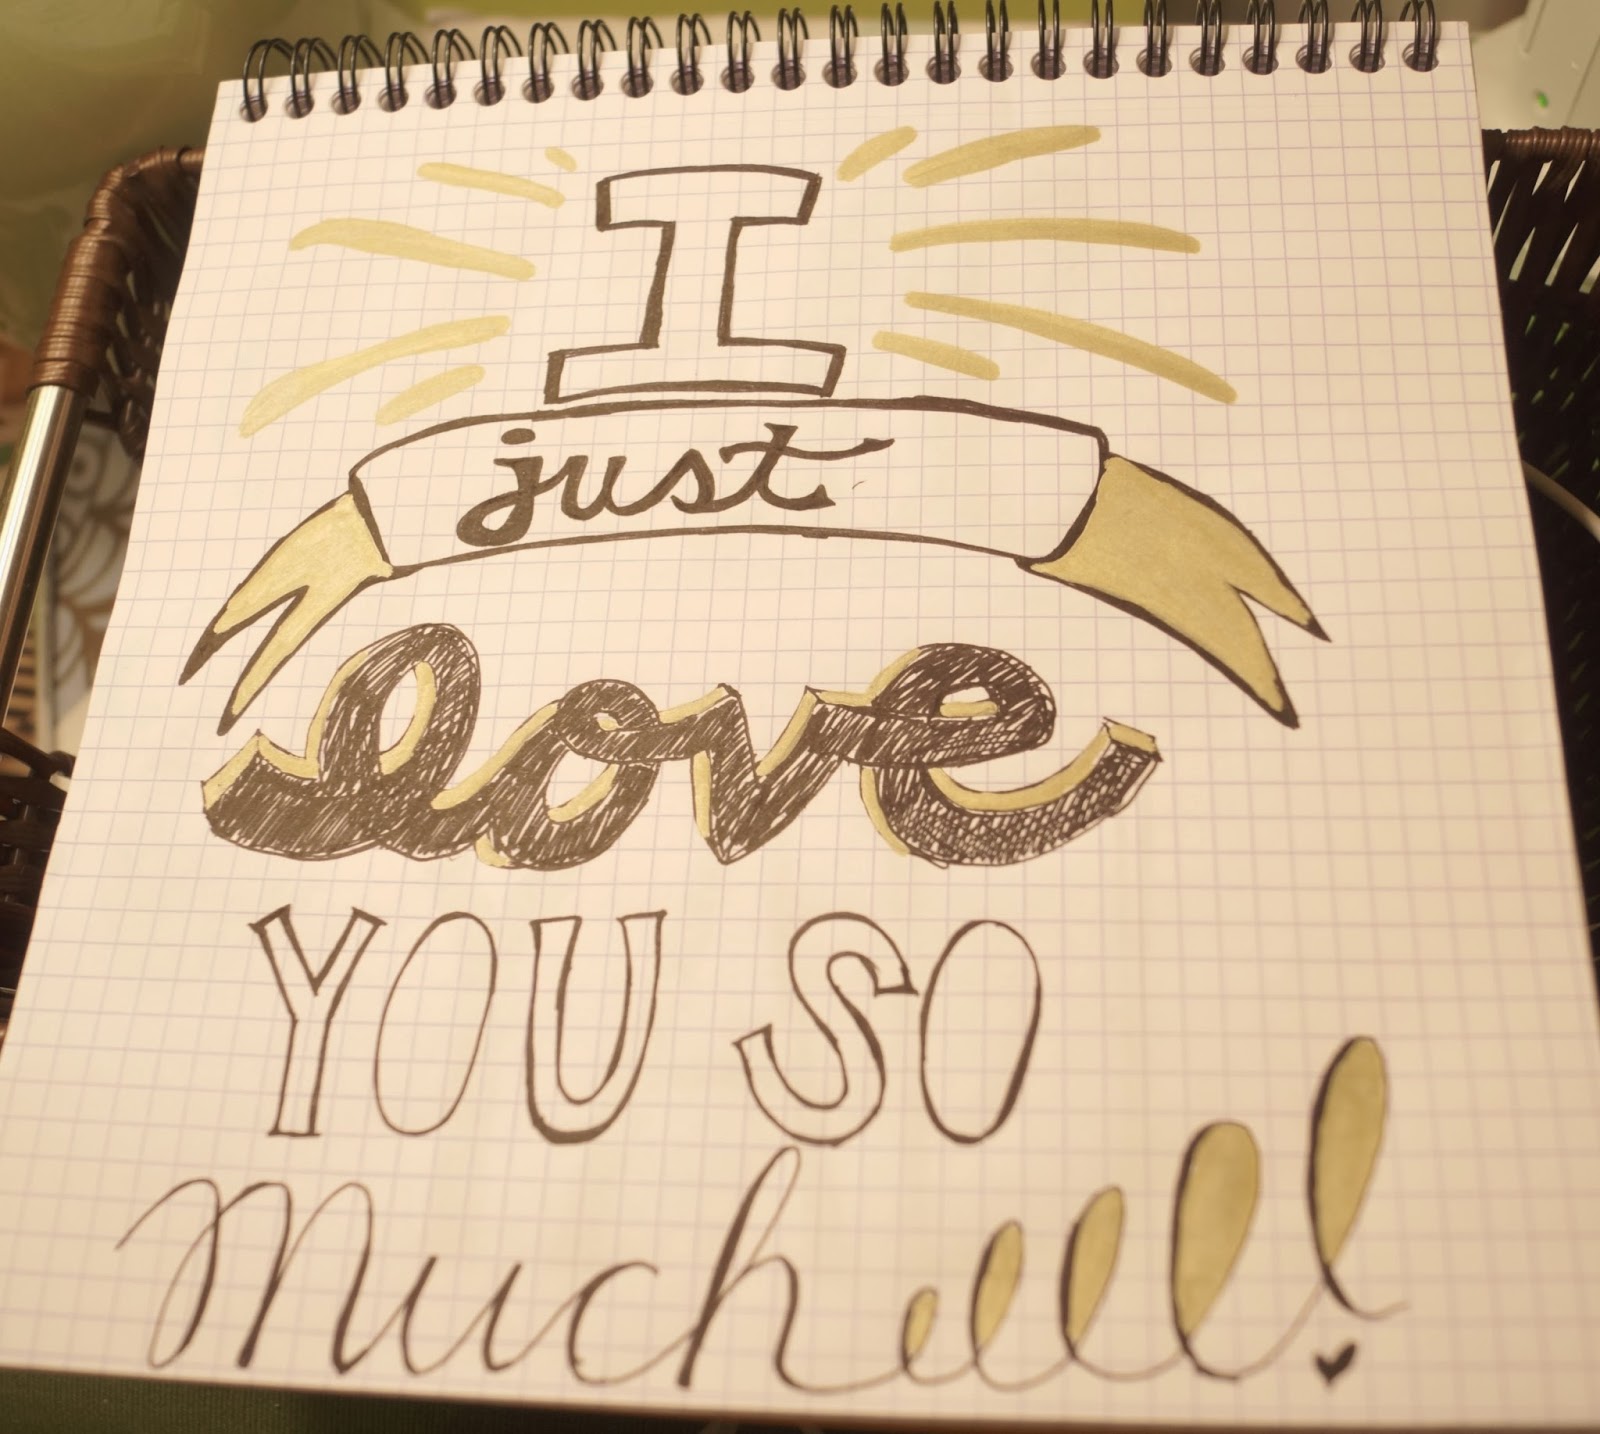 I
just
love
YOU SO
Much!